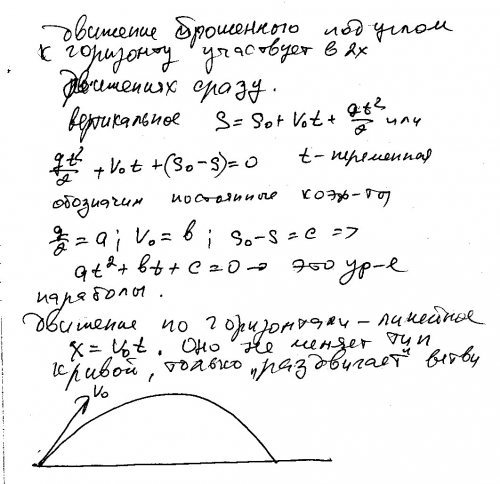 движение брошенного под углом
к горизонту участвует в 2х
движениях сразу.
вертикальное S = S₀ + V₀t + gt²/2 или
gt²/2 + V₀t + (S₀ - S) = 0 t - переменная
обозначим постоянные коэф-ты
g/2 = a ; V₀ = в ; S₀ - S = c =>
at² + bt + c = 0 → это ур-е
параболы.
движение по горизонтали - линейное
x = V₀t. Оно не меняет тип
кривой, только "раздвигает" ветви
V₀